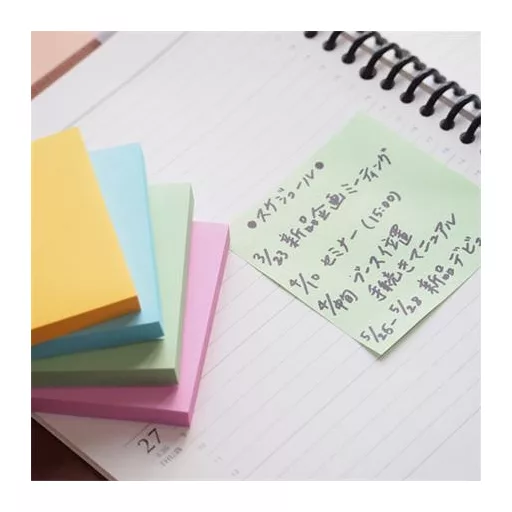 ●スケジュール●
3/23 新品企画ミーティング
4/10 セミナー(15:00)
4/旬 ブース位置
手続きマニュアル
5/25-5/28 新品デビュ
27